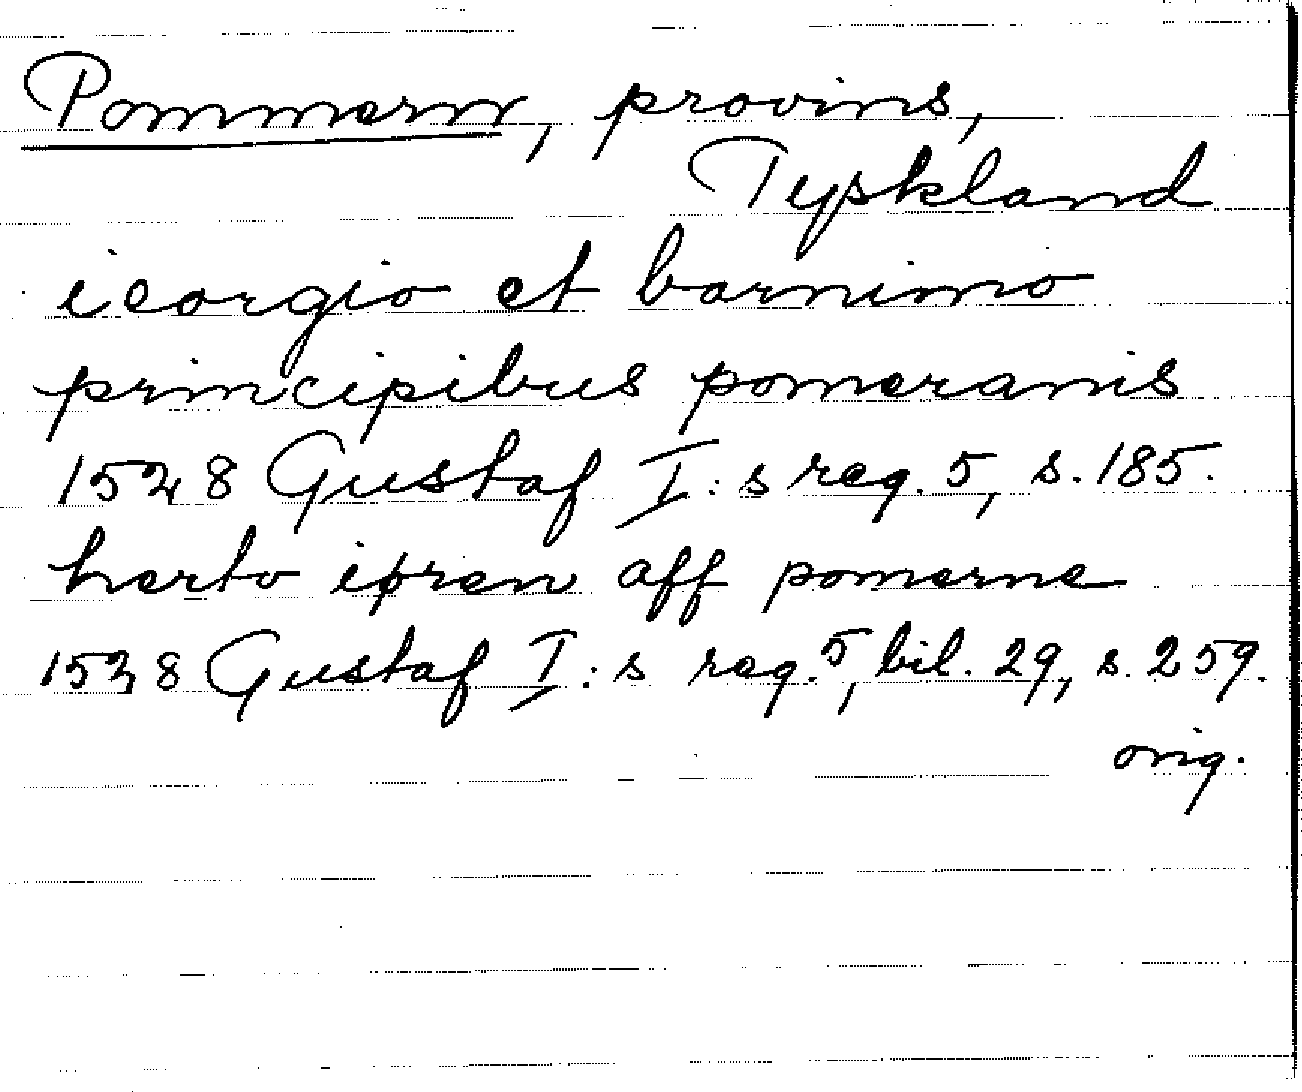 Pommern, provins,
Tyskland
ieorgio et barnimo
principibus pomeranis
1528 Gustaf I:s reg. 5, s. 185.
herto iøren aff pomerne
1528 Gustaf I:s reg. 5, bil. 29, s. 259.
orig.